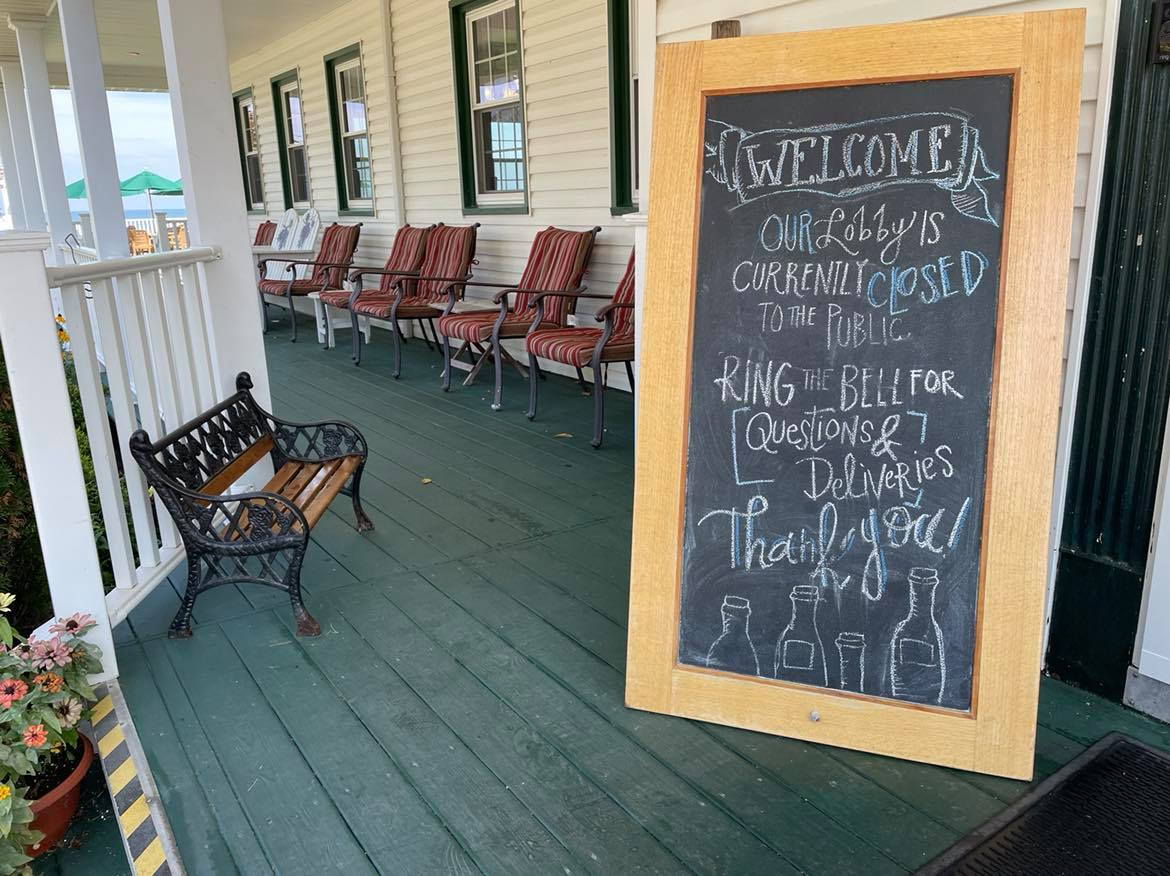 WELCOME
OUR Lobby IS
CURRENTLY CLOSED
TO THE PUBLIC
RING THE BELL FOR
QUESTIONS &
DELIVERIES
Thank you!